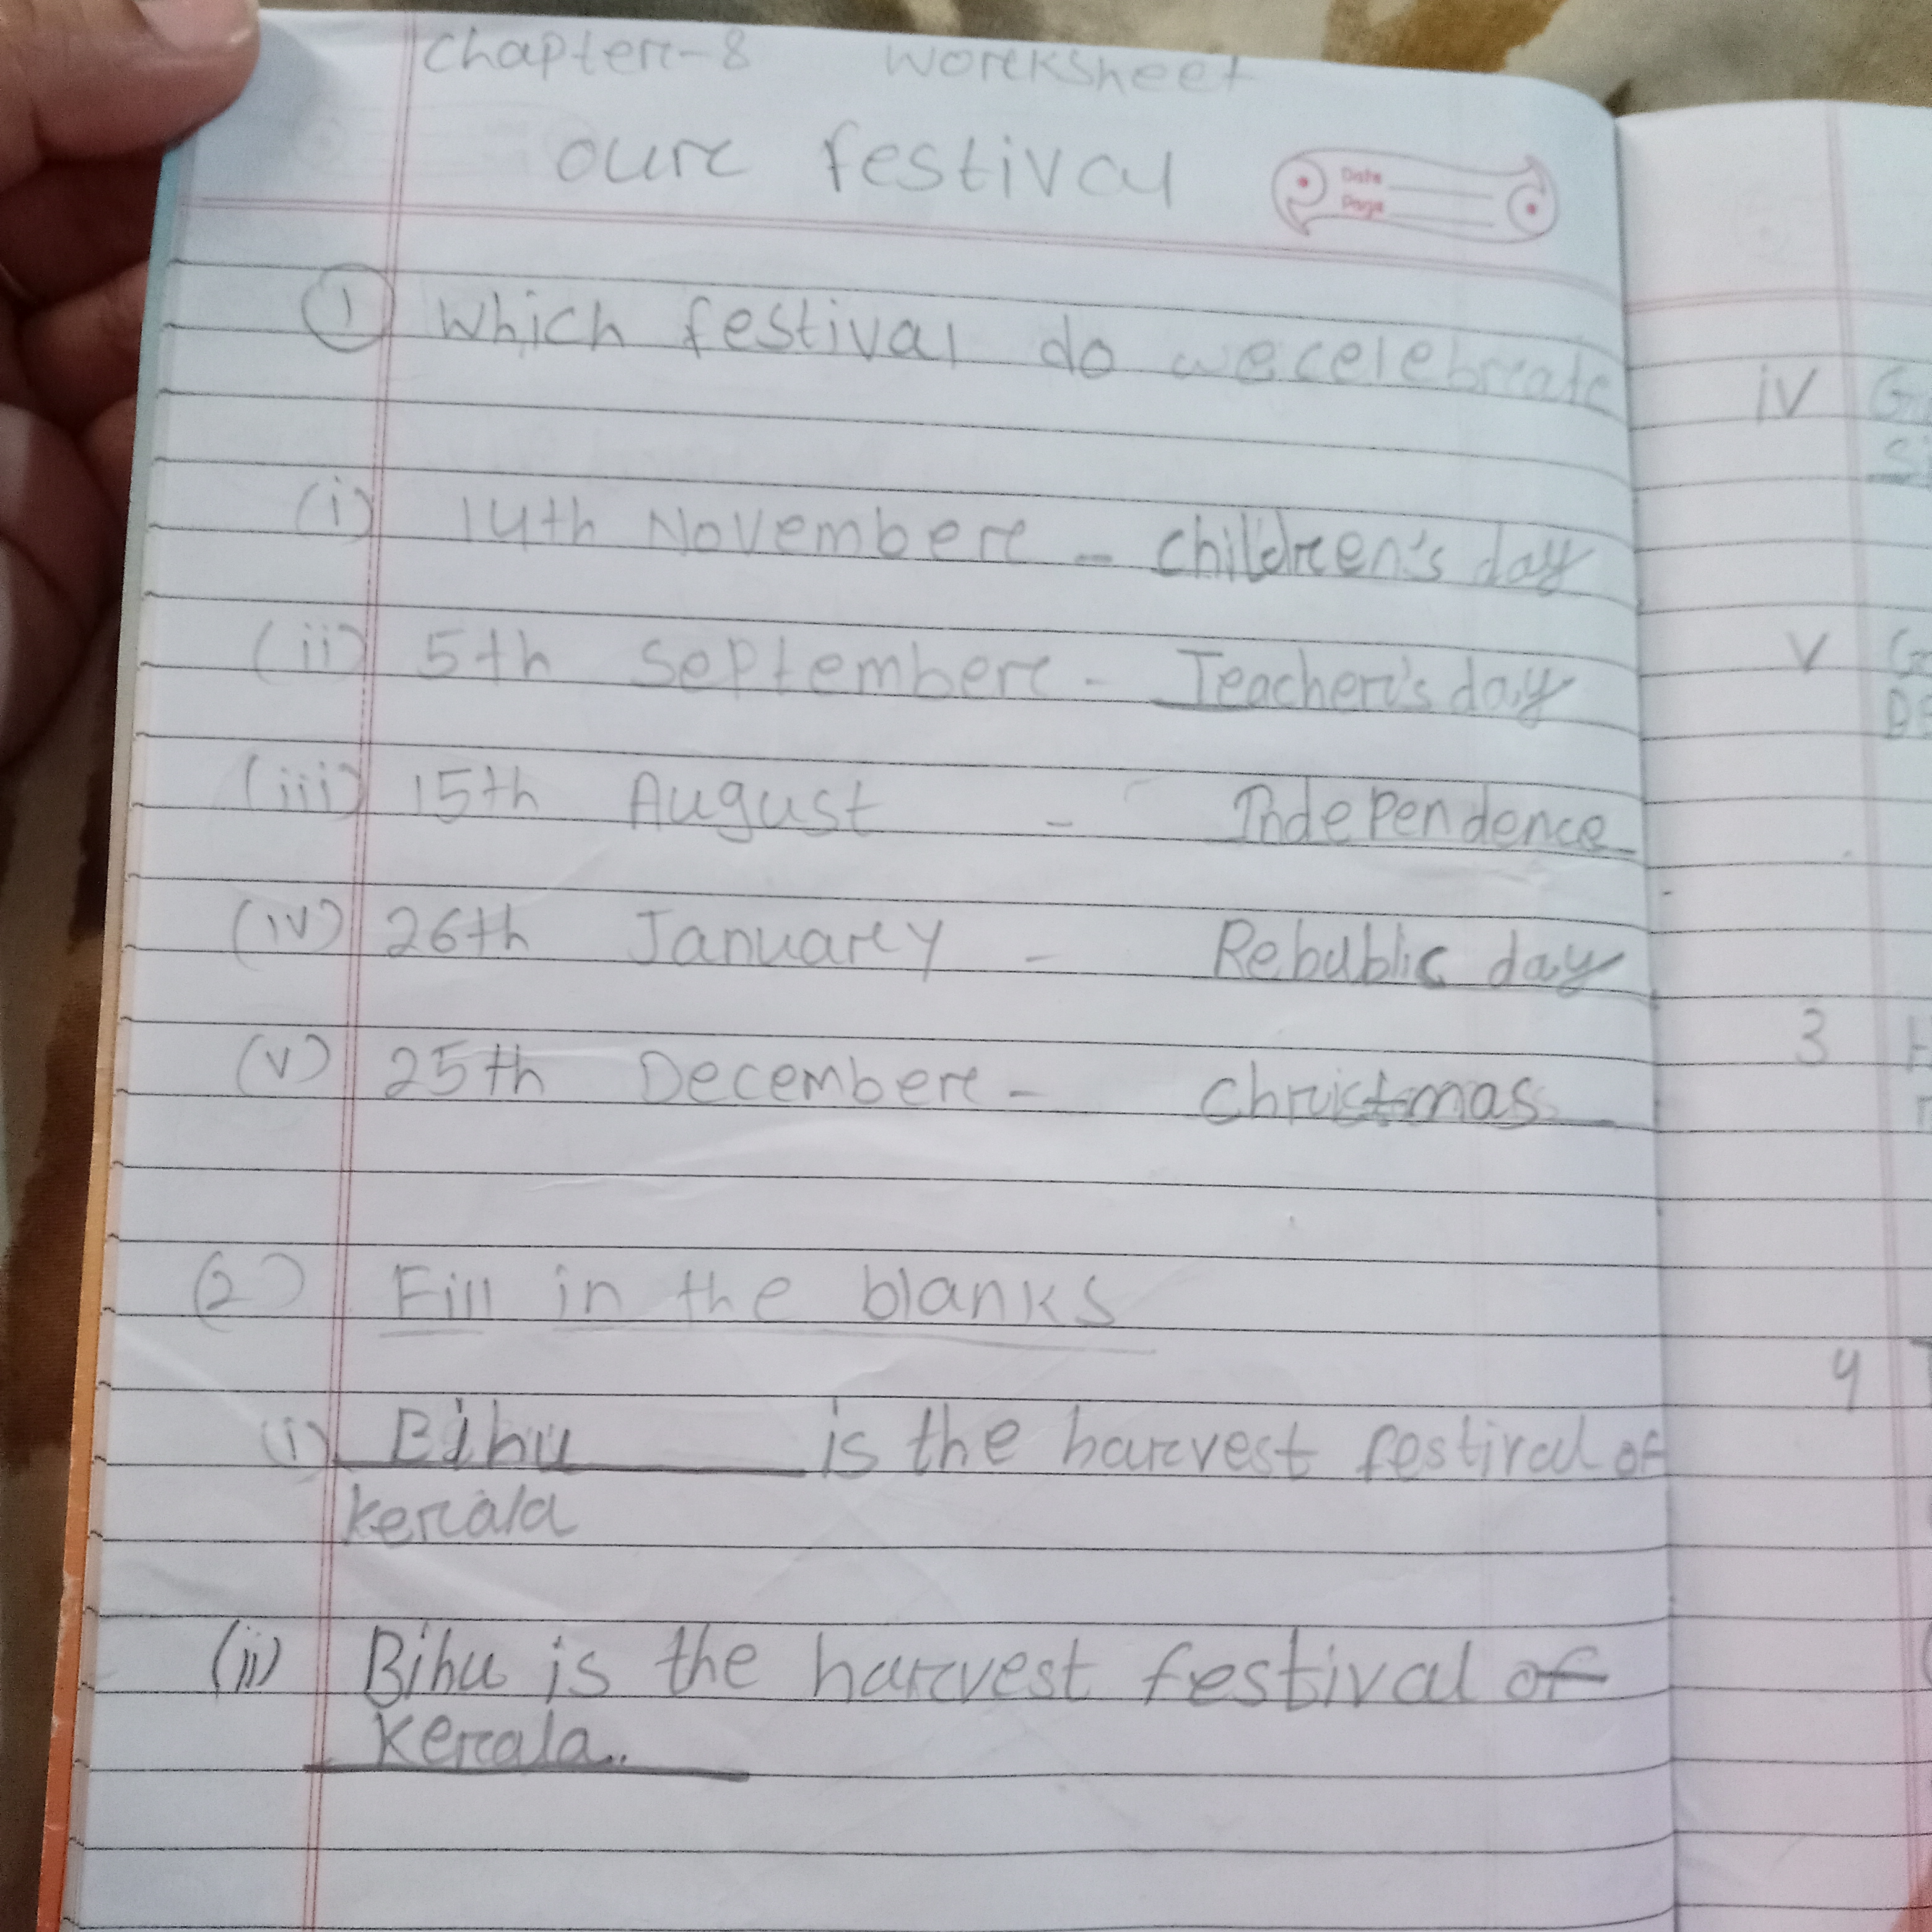 Chapter-8 Worksheet
our festival
Date
Page
① Which festival do we celebrate
(i) 14th November - Children's day
(ii) 5th September - Teacher's day
(iii) 15th August - Independence
(iv) 26th January - Rebublic day
(v) 25th December - Christmas
(2) Fill in the blanks
(i) Bihu is the harvest festival of
kerala
(ii) Bihu is the harvest festival of
kerala..
iv
v
3
4